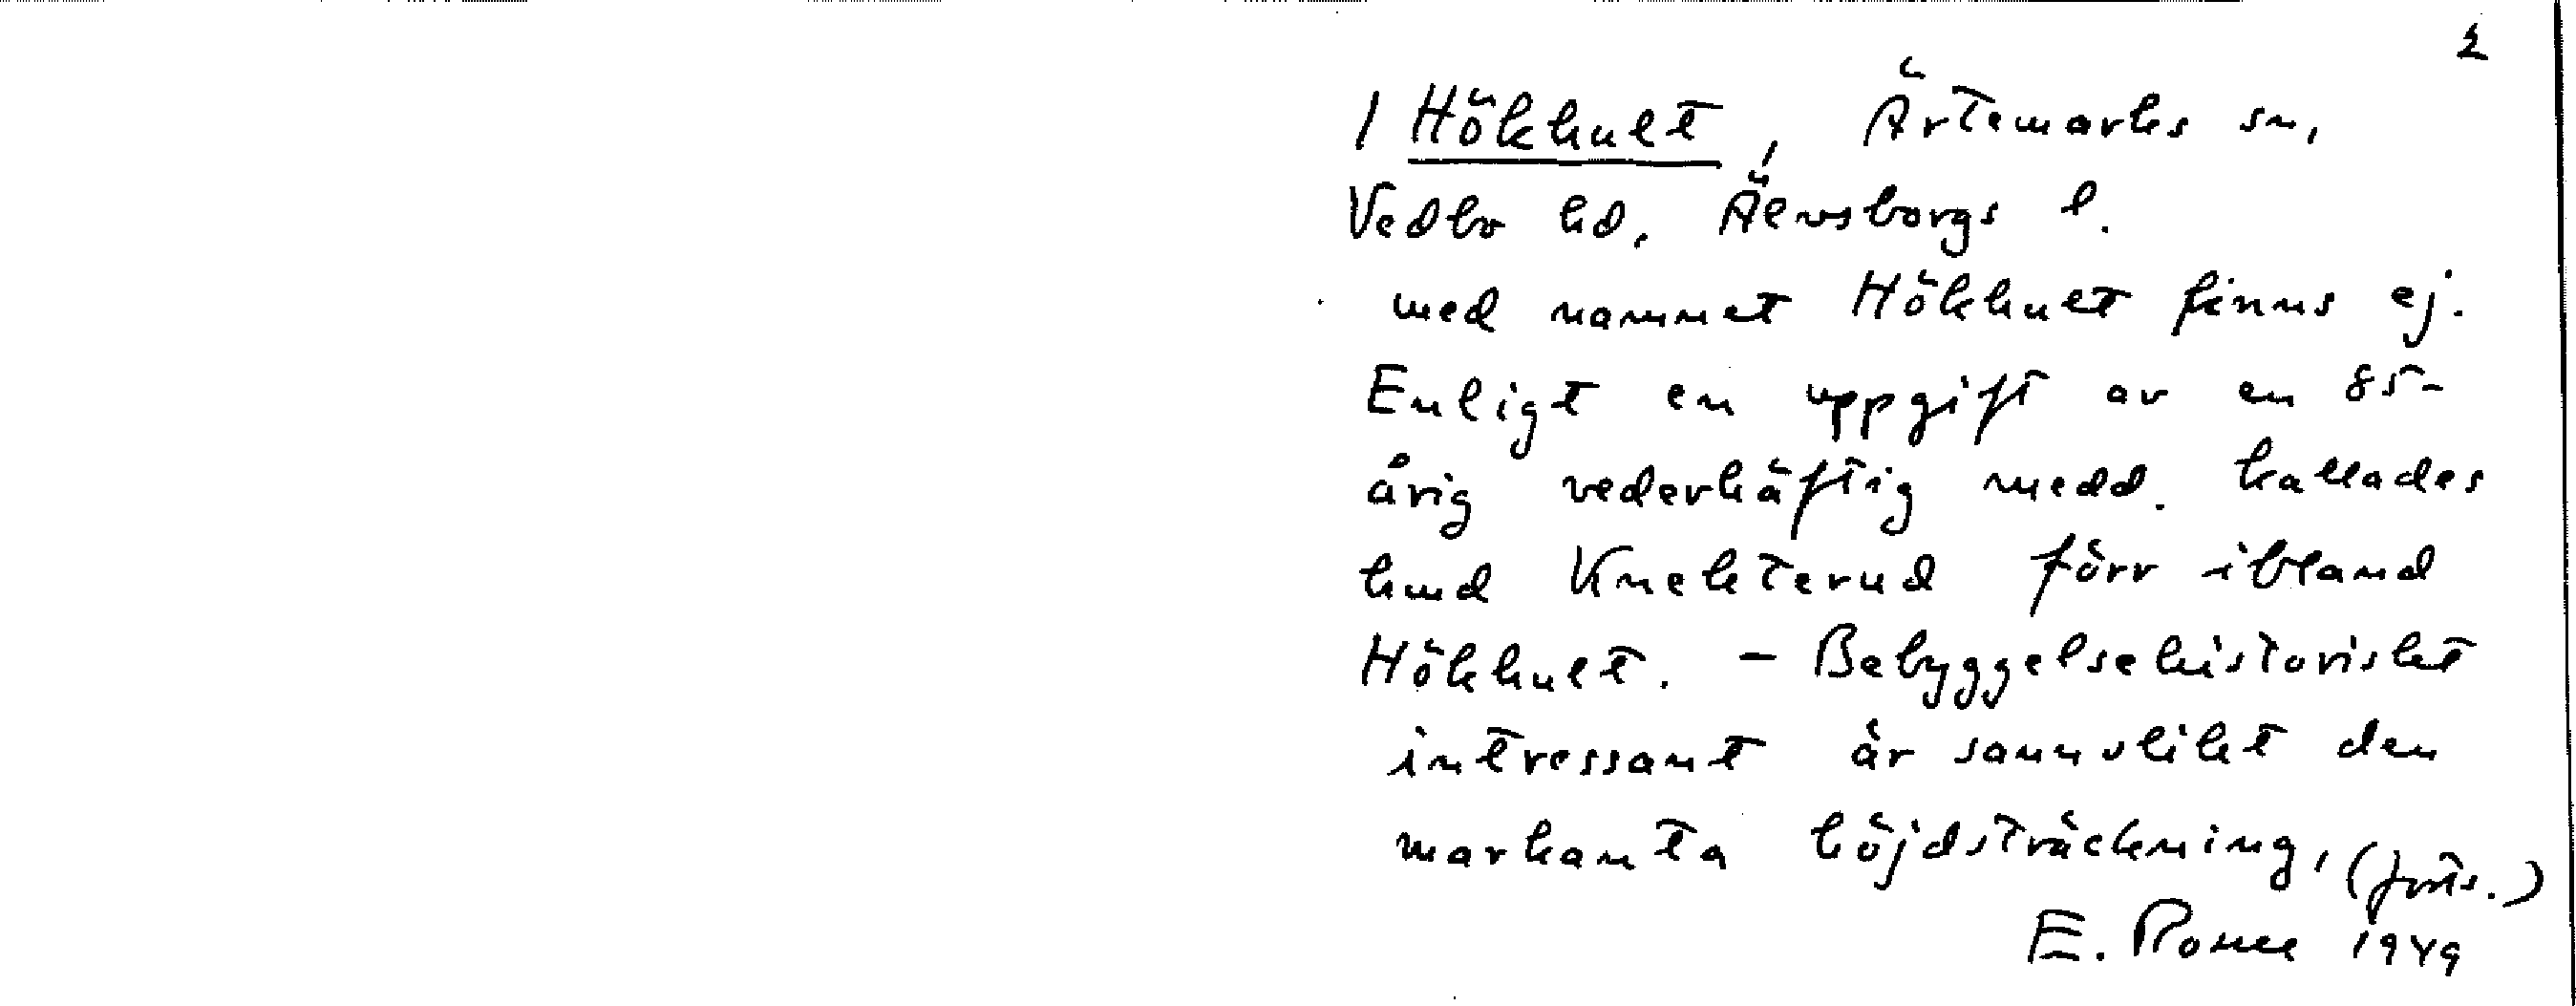 2
1 Hökhult, Ärtemarks sn,
Vedbo hd, Älvsborgs l.
med namnet Hökhult finns ej.
Enligt en uppgift av en 85-
årig vederhäftig medd. kallades
hmd Knekterud förr ibland
Hökhult. - Bebyggelsehistoriskt
intressant är sannolikt den
markanta höjdsträckning, (forts.)
E. 1949